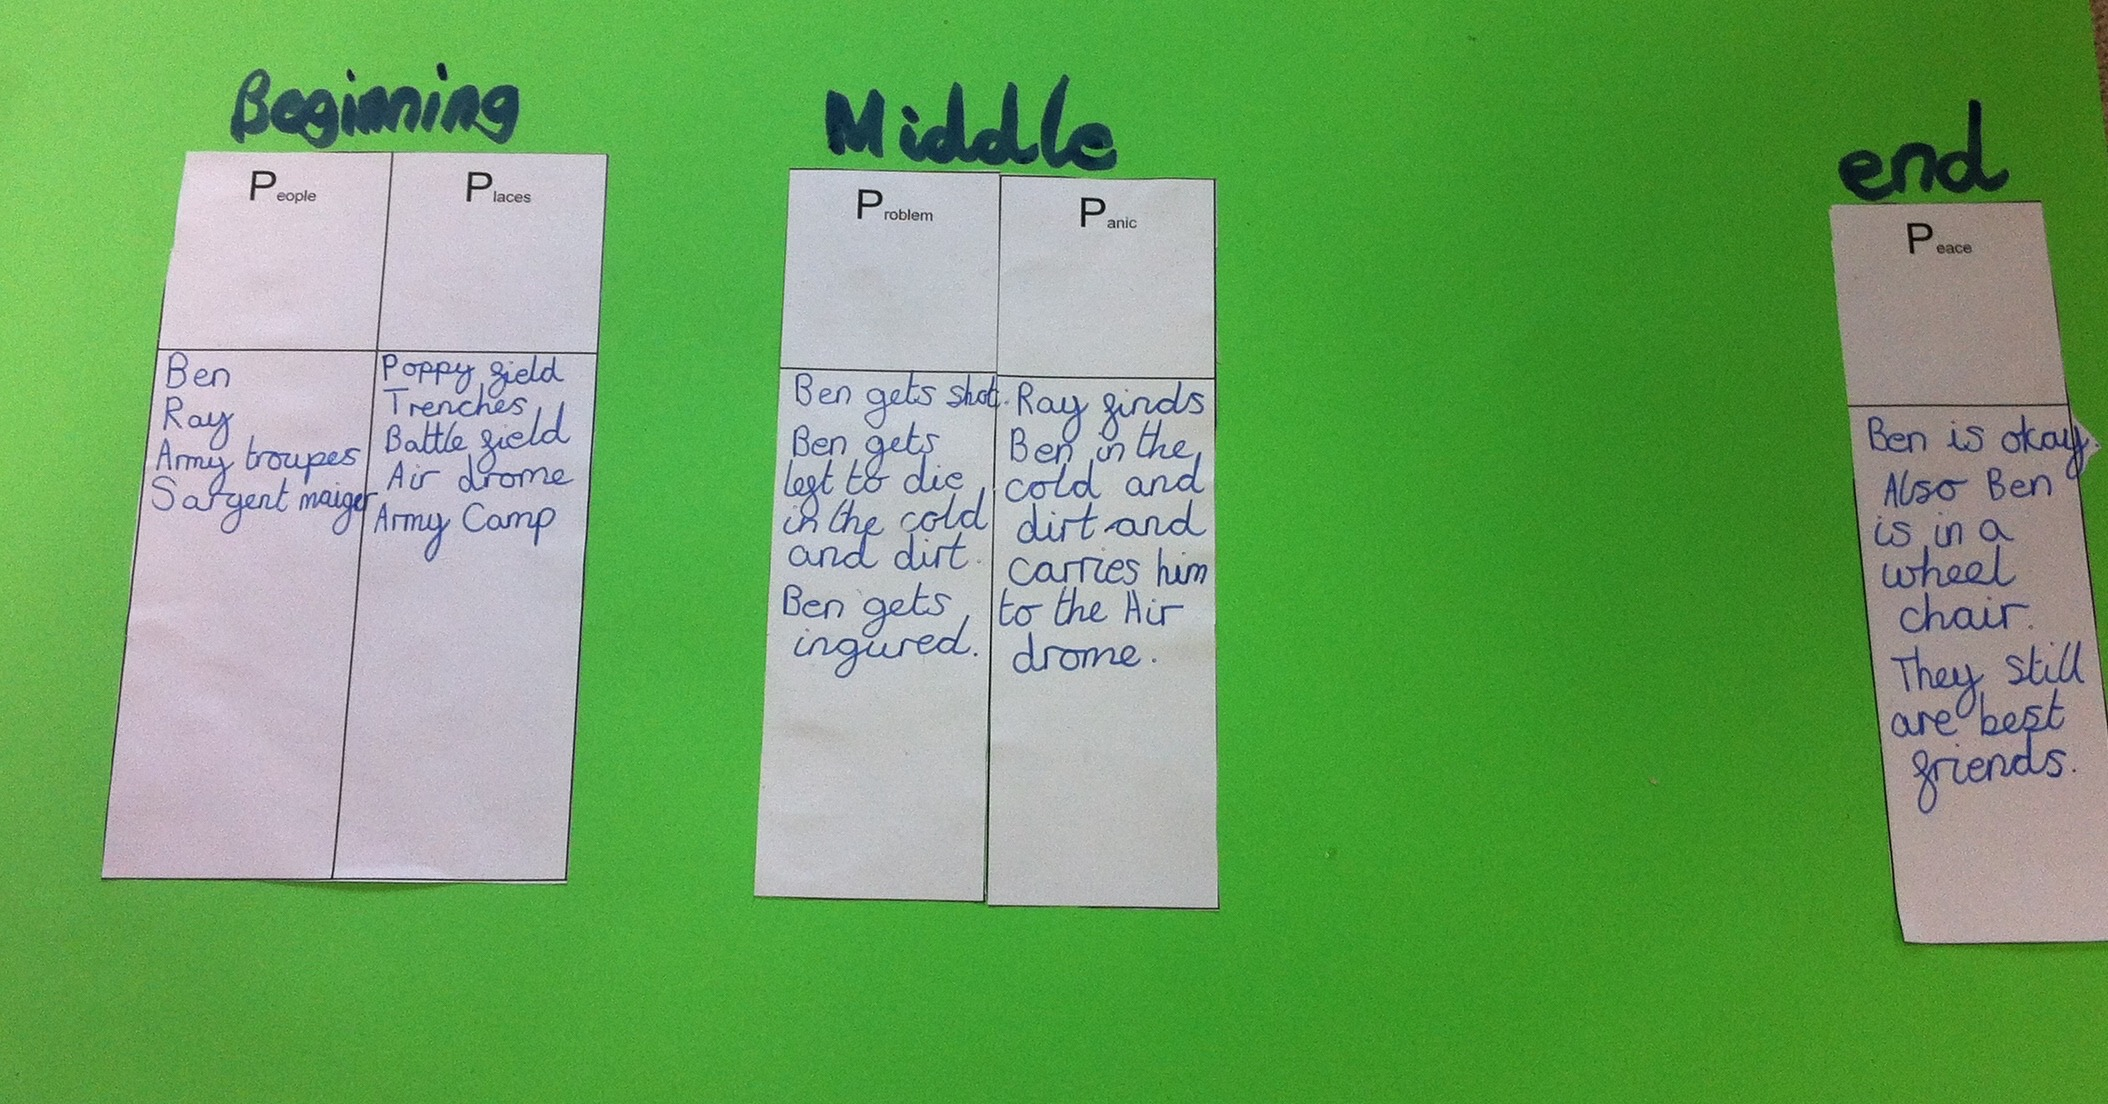 Beginning
People
Ben
Ray
Army troupes
Sargent maiger
Places
Poppy field
Trenches
Battle field
Air drome
Army Camp
Middle
Problem
Ben gets shot.
Ben gets
left to die
in the cold
and dirt.
Ben gets
ingured.
Panic
Ray finds
Ben in the
cold and
dirt and
carries him
to the Air
drome.
end
Peace
Ben is okay.
Also Ben
is in a
wheel
chair.
They still
are best
friends.